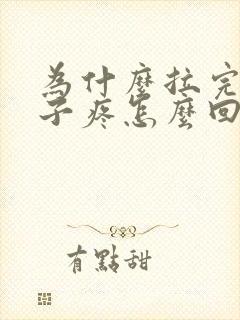 為什麼拉完
子疼怎麼回
有點甜